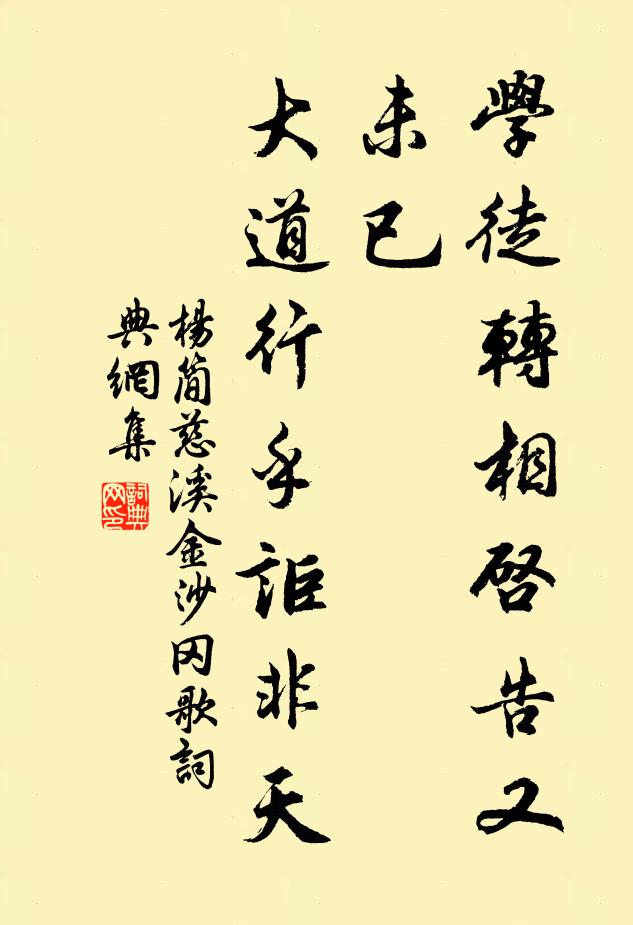 學徒轉相啓告又
未已
大道行乎詎非天
楊簡慈溪金沙冈歌詞
典網集
詞典
网印